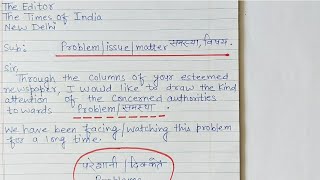 The Editor
The Times of India
New Delhi
Sub: Problem/issue/matter समस्या, विषय.
Sir,
Through the columns of your esteemed
newspaper, I would like to draw the kind
attention of the concerned authorities
towards Problem/समस्या.
We have been facing/watching this problem
for a long time.
परेशानी / दिक्कतें
Problems